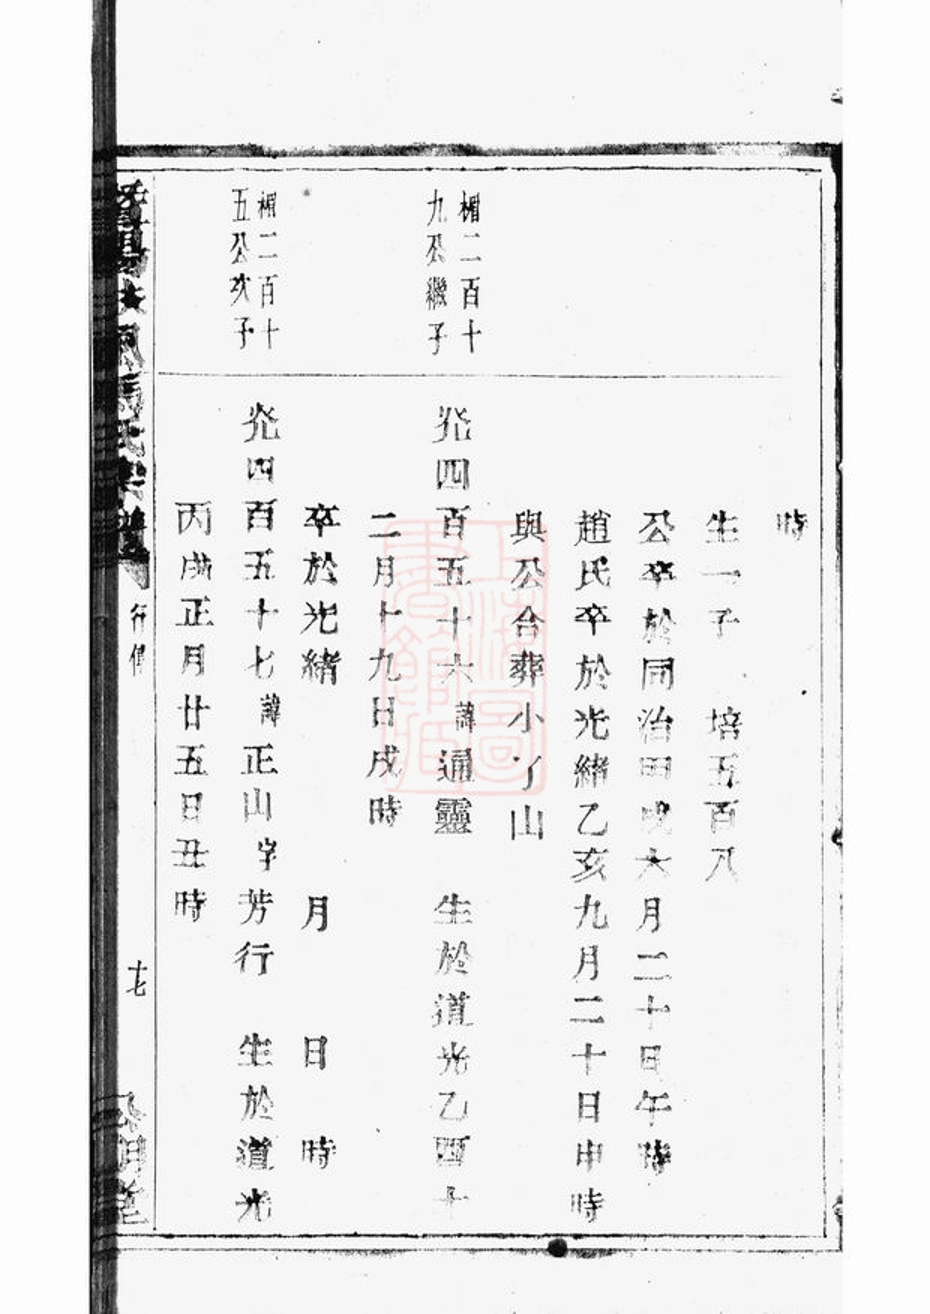 時
生一子　培五百八
公卒於同治甲戌六月二十日午時
趙氏卒於光緒乙亥九月二十日申時
與公合葬小了山
楣二百十
九公繼子
四百五十六諱通靈　生於道光乙酉十
二月十九日戌時
卒於光緒　月　日　時
楣二百十
五公次子
四百五十七諱正山字芳行　生於道光
丙戌正月廿五日丑時
馬氏宗譜
行傳
十七